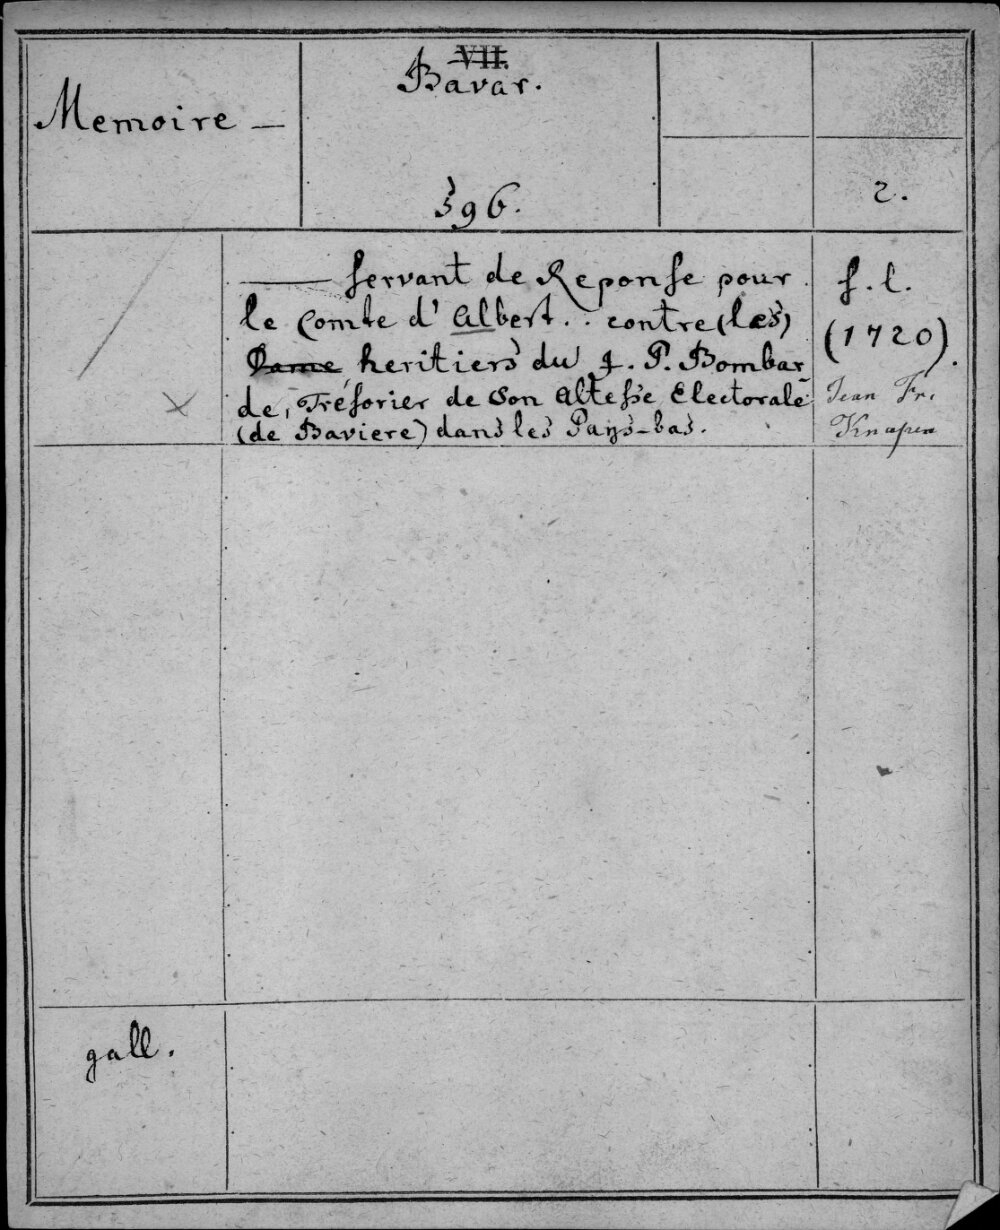 Memoire —
VII.
Bavar.
596.
2.
—— servant de Reponse pour
le Comte d' Albert . . contre (les)
Dame heritiers du f. P. Bombar
de, Trésorier de Son Altesse Electorale
(de Baviere) dans les Pays-bas.
s. l.
(1720).
Jean Fr.
Knapen
gall.